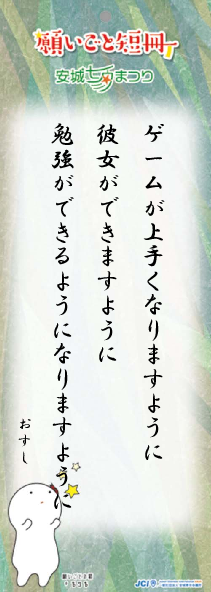 願いごと短冊
安城七夕まつり
ゲームが上手くなりますように
彼女ができますように
勉強ができるようになりますように
おすし
JCI